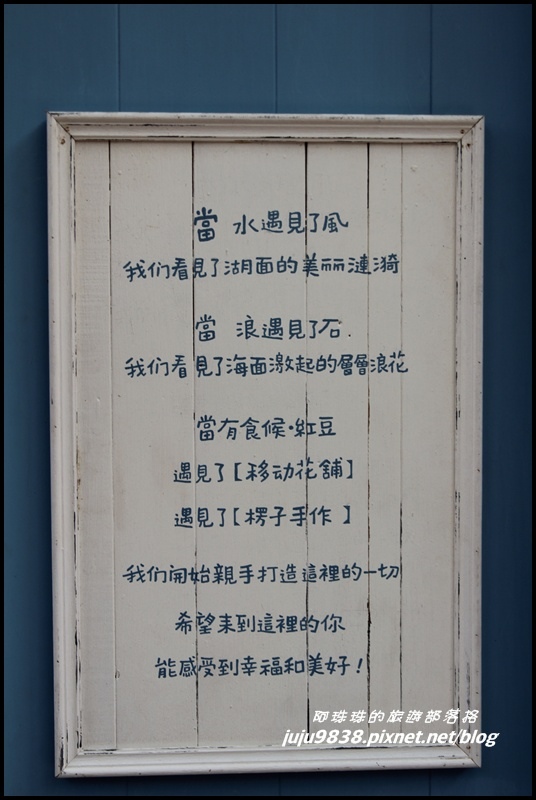 當 水遇見了風
我们看見了湖面的美丽漣漪
當 浪遇見了石.
我们看見了海面激起的層層浪花
當有食候·紅豆
遇見了【移动花舖】
遇見了【楞子手作】
我们開始親手打造這裡的一切
希望来到這裡的你
能感受到幸福和美好!
阿珠珠的旅遊部落格
juju9838.pixnet.net/blog